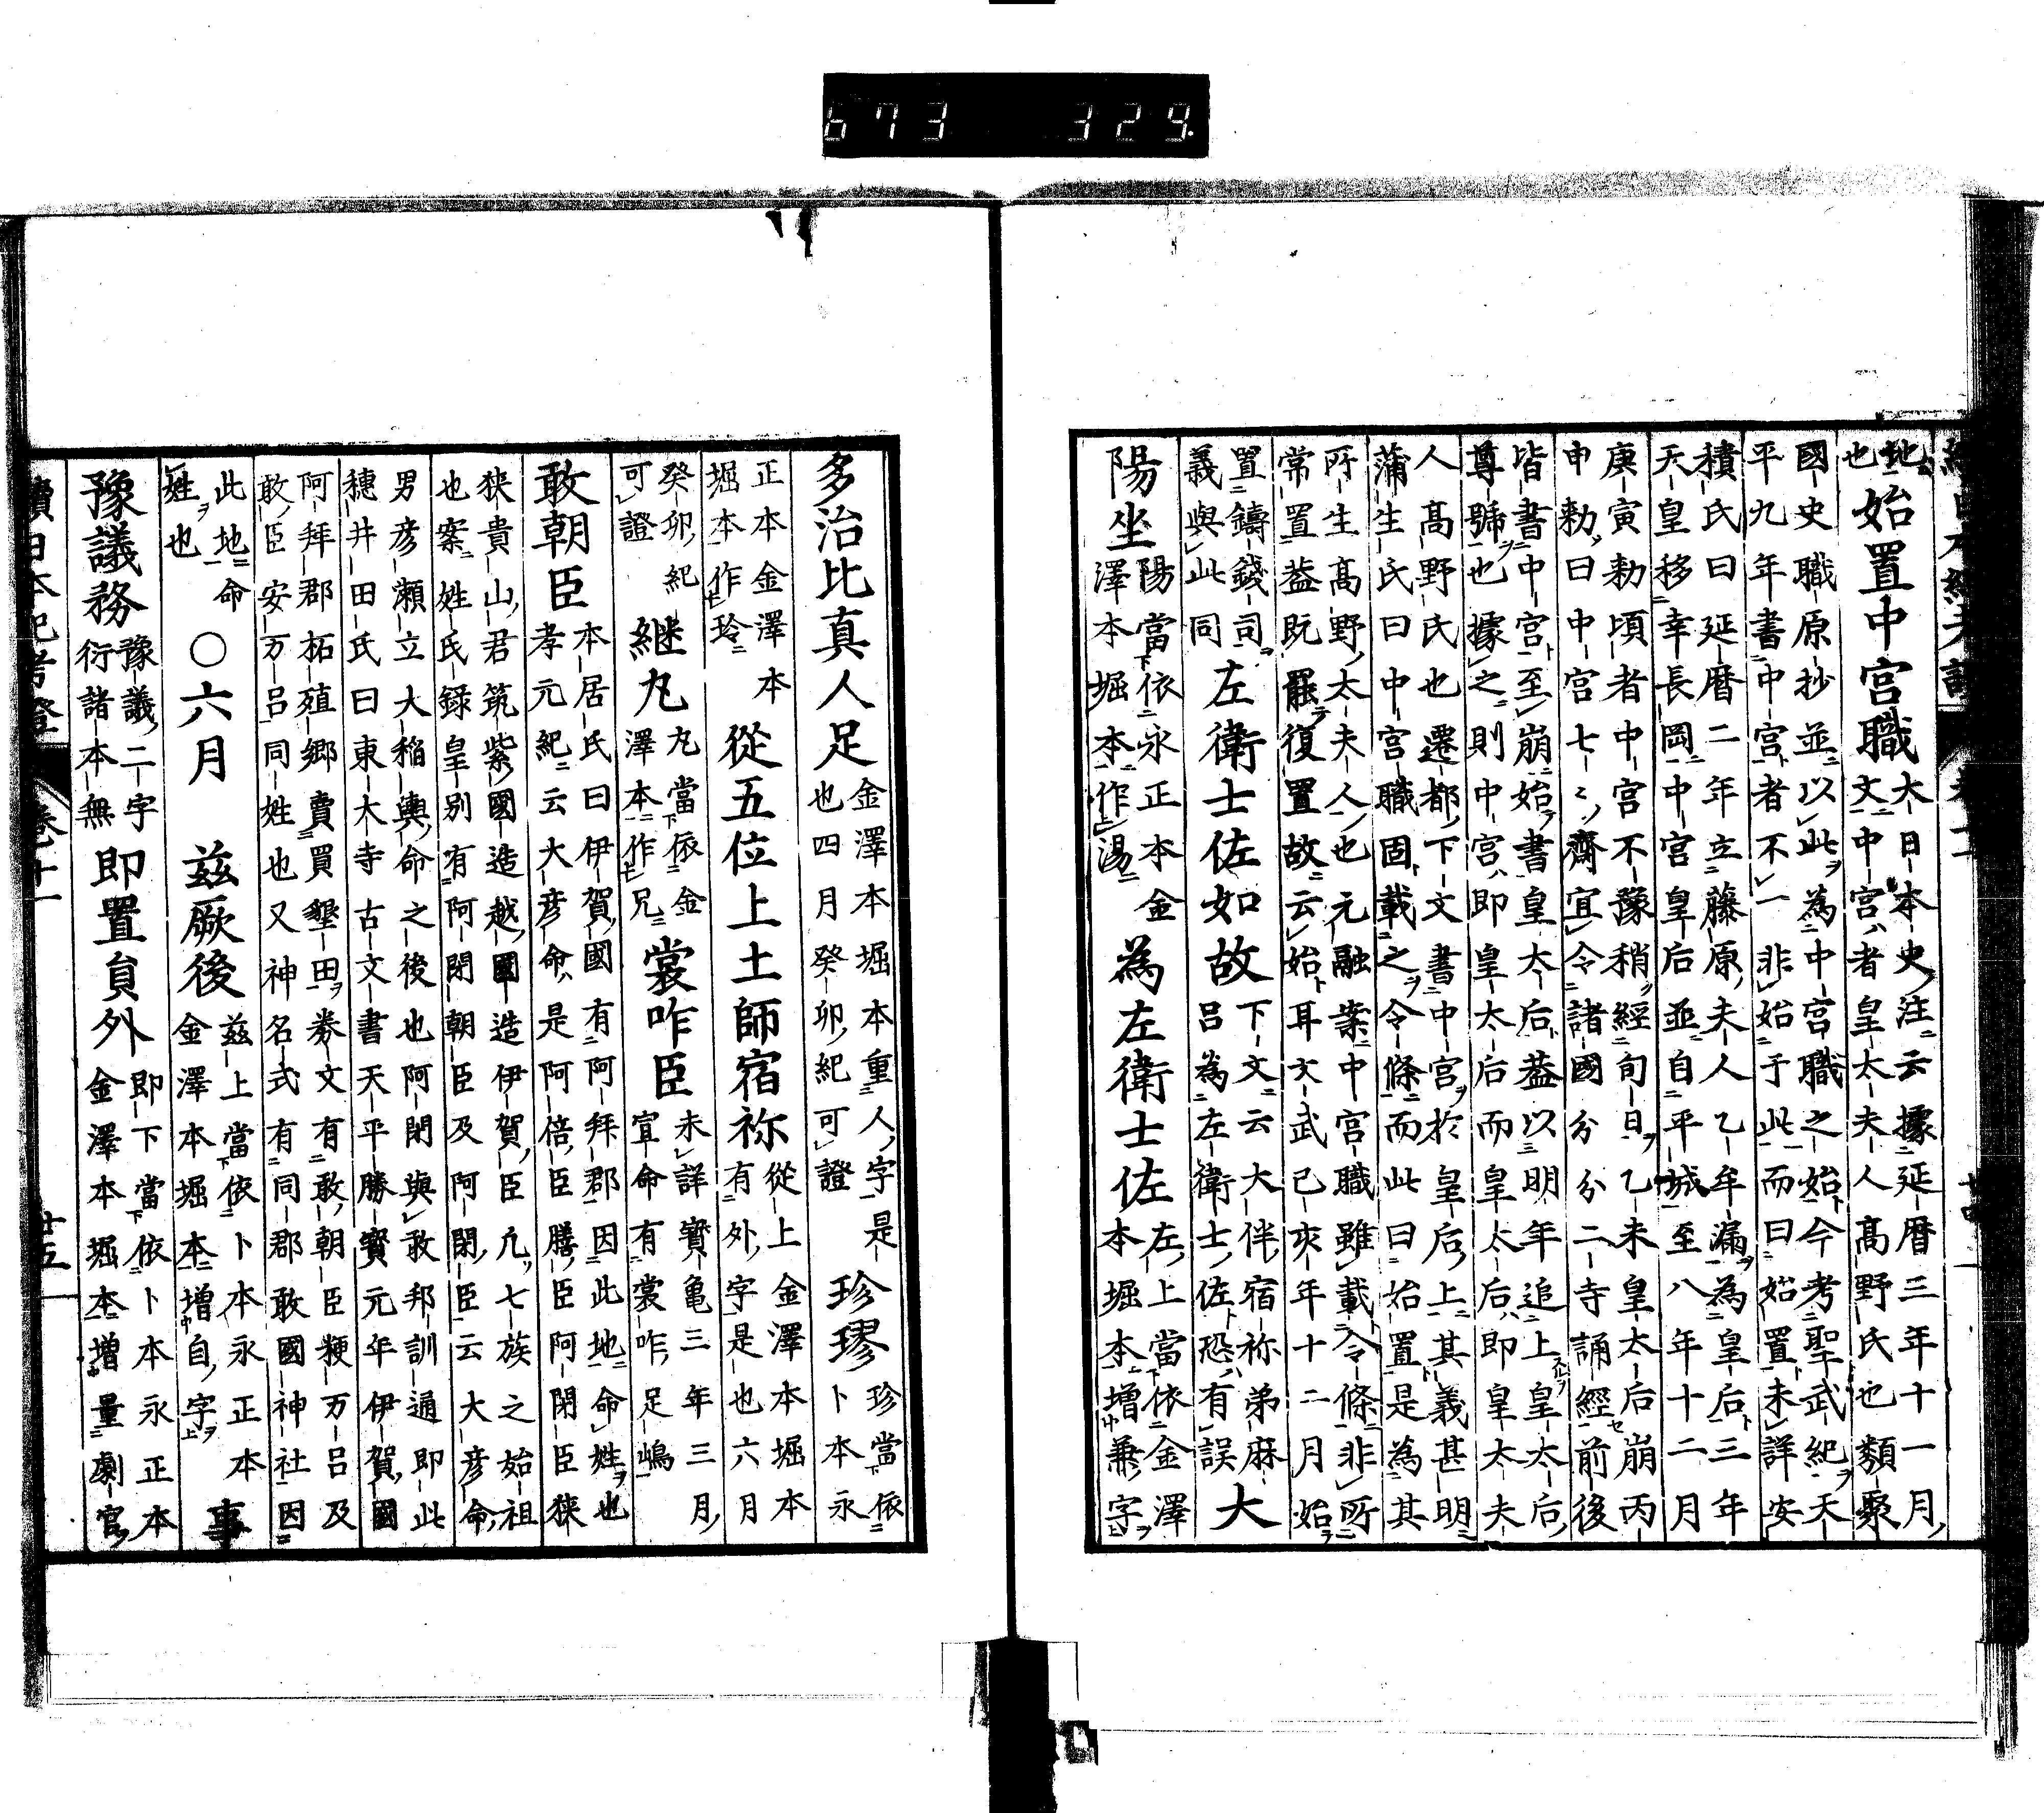 673 329.
地
也
始置中宮職
大日本史注云據延暦三年十一月
文中宮者皇太夫人高野氏也類聚
國史職原抄並以此為中宮職之始今考聖武紀天
平九年書中宮者不一非始于此而曰始置未詳安
積氏曰延暦二年立藤原夫人乙牟漏為皇后三年
天皇移幸長岡中宮皇后並自平城至八年十二月
庚寅勅頃者中宮不豫稍經旬日乙未皇太后崩丙
申勅曰中宮七〻齋宜令諸國分分二寺誦經前後
皆書中宮至崩始書皇太后葢以明年追上皇太后
尊號也據之則中宮即皇太后而皇太后即皇太夫
人髙野氏也遷都下文書中宮於皇后上其義甚明
蒲生氏曰中宮職固載之令條而此曰始置是為其
所生髙野太夫人也元融案中宮職雖載令條非所
常置葢既罷復置故云始耳文武己亥年十二月始
置鑄錢司
義與此同
左衛士佐如故
下文云大伴宿祢弟麻
呂為左衛士佐恐有誤
大
陽坐
陽當依永正本金
澤本堀本作湯
為左衛士佐
左上當依金澤
本堀本增兼字
多治比真人足
金澤本堀本重人字是
也四月癸卯紀可證
珍璆
珍當依
卜本永
正本金澤本
堀本作玲
從五位上土師宿祢
從上金澤本堀本
有外字是也六月
癸卯紀
可證
継丸
丸當依金
澤本作兄
裳咋臣
未詳寶亀三年三月
宜命有裳咋足嶋
敢朝臣
本居氏曰伊賀國有阿拜郡因此地命姓也
孝元紀云大彦命是阿倍臣膳臣阿閇臣狭
狭貴山君筑紫國造越國造伊賀臣凢七族之始祖
也案姓氏録皇別有阿閇朝臣及阿閇臣云大彦命
男彦瀬立大稲輿命之後也阿閇與敢邦訓通即此
穂井田氏曰東大寺古文書天平勝寳元年伊賀國
阿拜郡柘殖郷賣買墾田券文有敢朝臣粳万呂及
敢臣安万呂同姓也又神名式有同郡敢國神社因
此地命
姓也
○六月
茲厥後
茲上當依卜本永正本
金澤本堀本增自字
事
豫議務
豫議二字
衍諸本無
即置員外
即下當依卜本永正本
金澤本堀本增量劇官